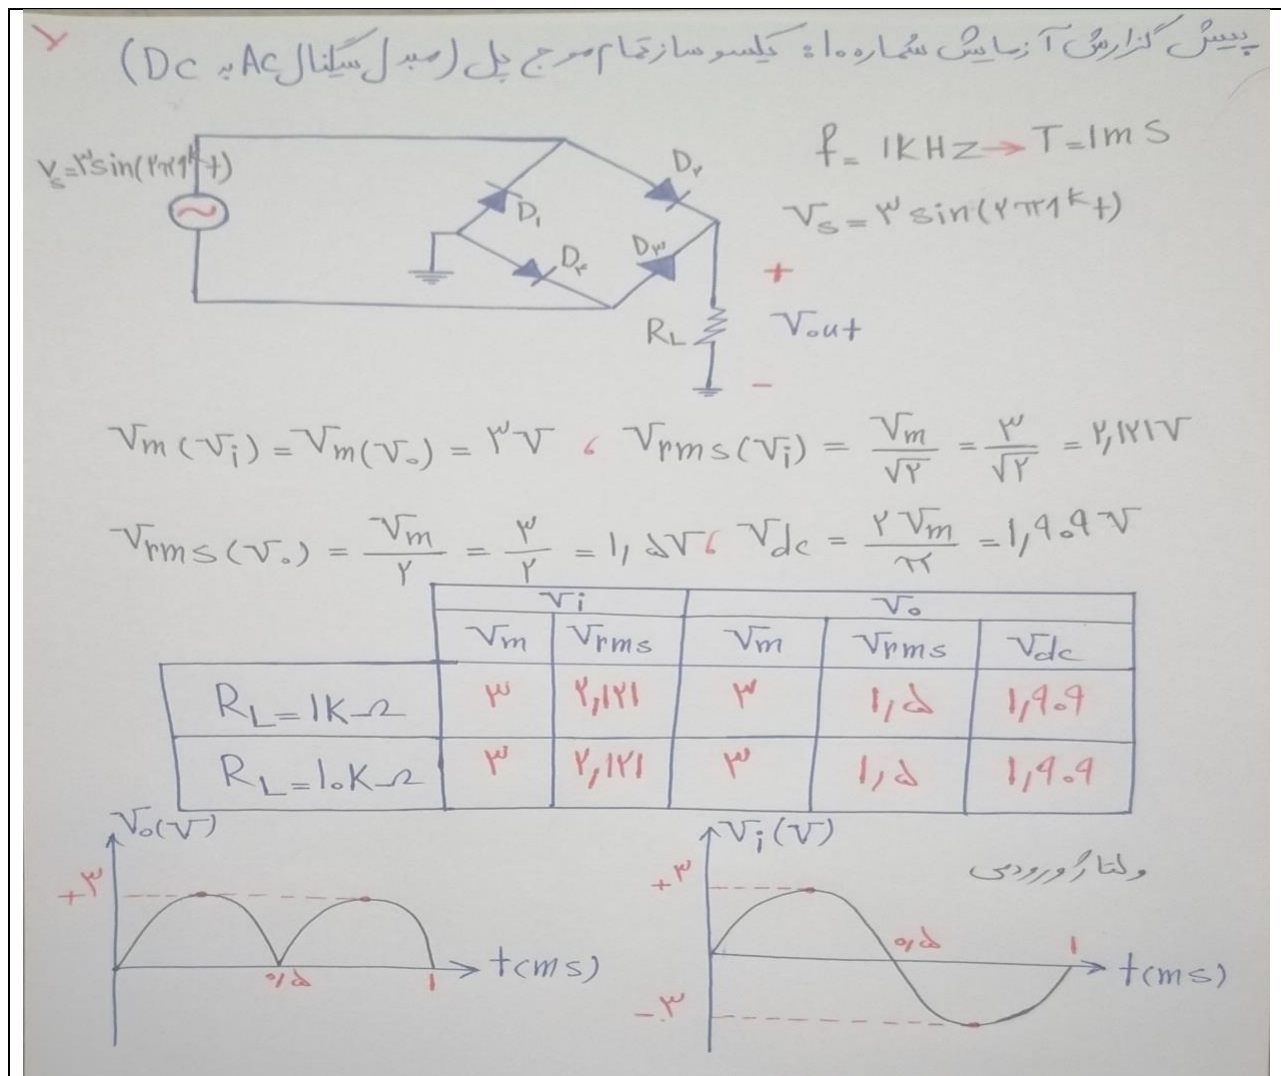 ۷
پیش گزارش آزمایش شماره ۱۰: یکسوساز تمام موج پل (مبدل سیگنال Ac به Dc)
Vs=۳sin(۲π1ᵏt)
D۱
D۲
D۳
D۴
RL
+
Vout
-
f = 1KHz → T=1ms
Vs = ۳ sin(۲π1ᵏt)
Vm(Vi) = Vm(Vo) = ۳V ، Vrms(Vi) = Vm/√۲ = ۳/√۲ = ۲,۱۲۱V
Vrms(Vo) = Vm/۲ = ۳/۲ = ۱,۵V ، Vdc = ۲Vm/π = ۱,۹۰۹V
Vi Vo
Vm Vrms Vm Vrms Vdc
RL=1KΩ ۳ ۲,۱۲۱ ۳ ۱,۵ ۱,۹۰۹
RL=۱۰KΩ ۳ ۲,۱۲۱ ۳ ۱,۵ ۱,۹۰۹
Vo(V)
+۳
۰,۵ ۱ t(ms)
Vi(V)
ولتاژ ورودی
+۳
۰,۵ ۱ t(ms)
-۳